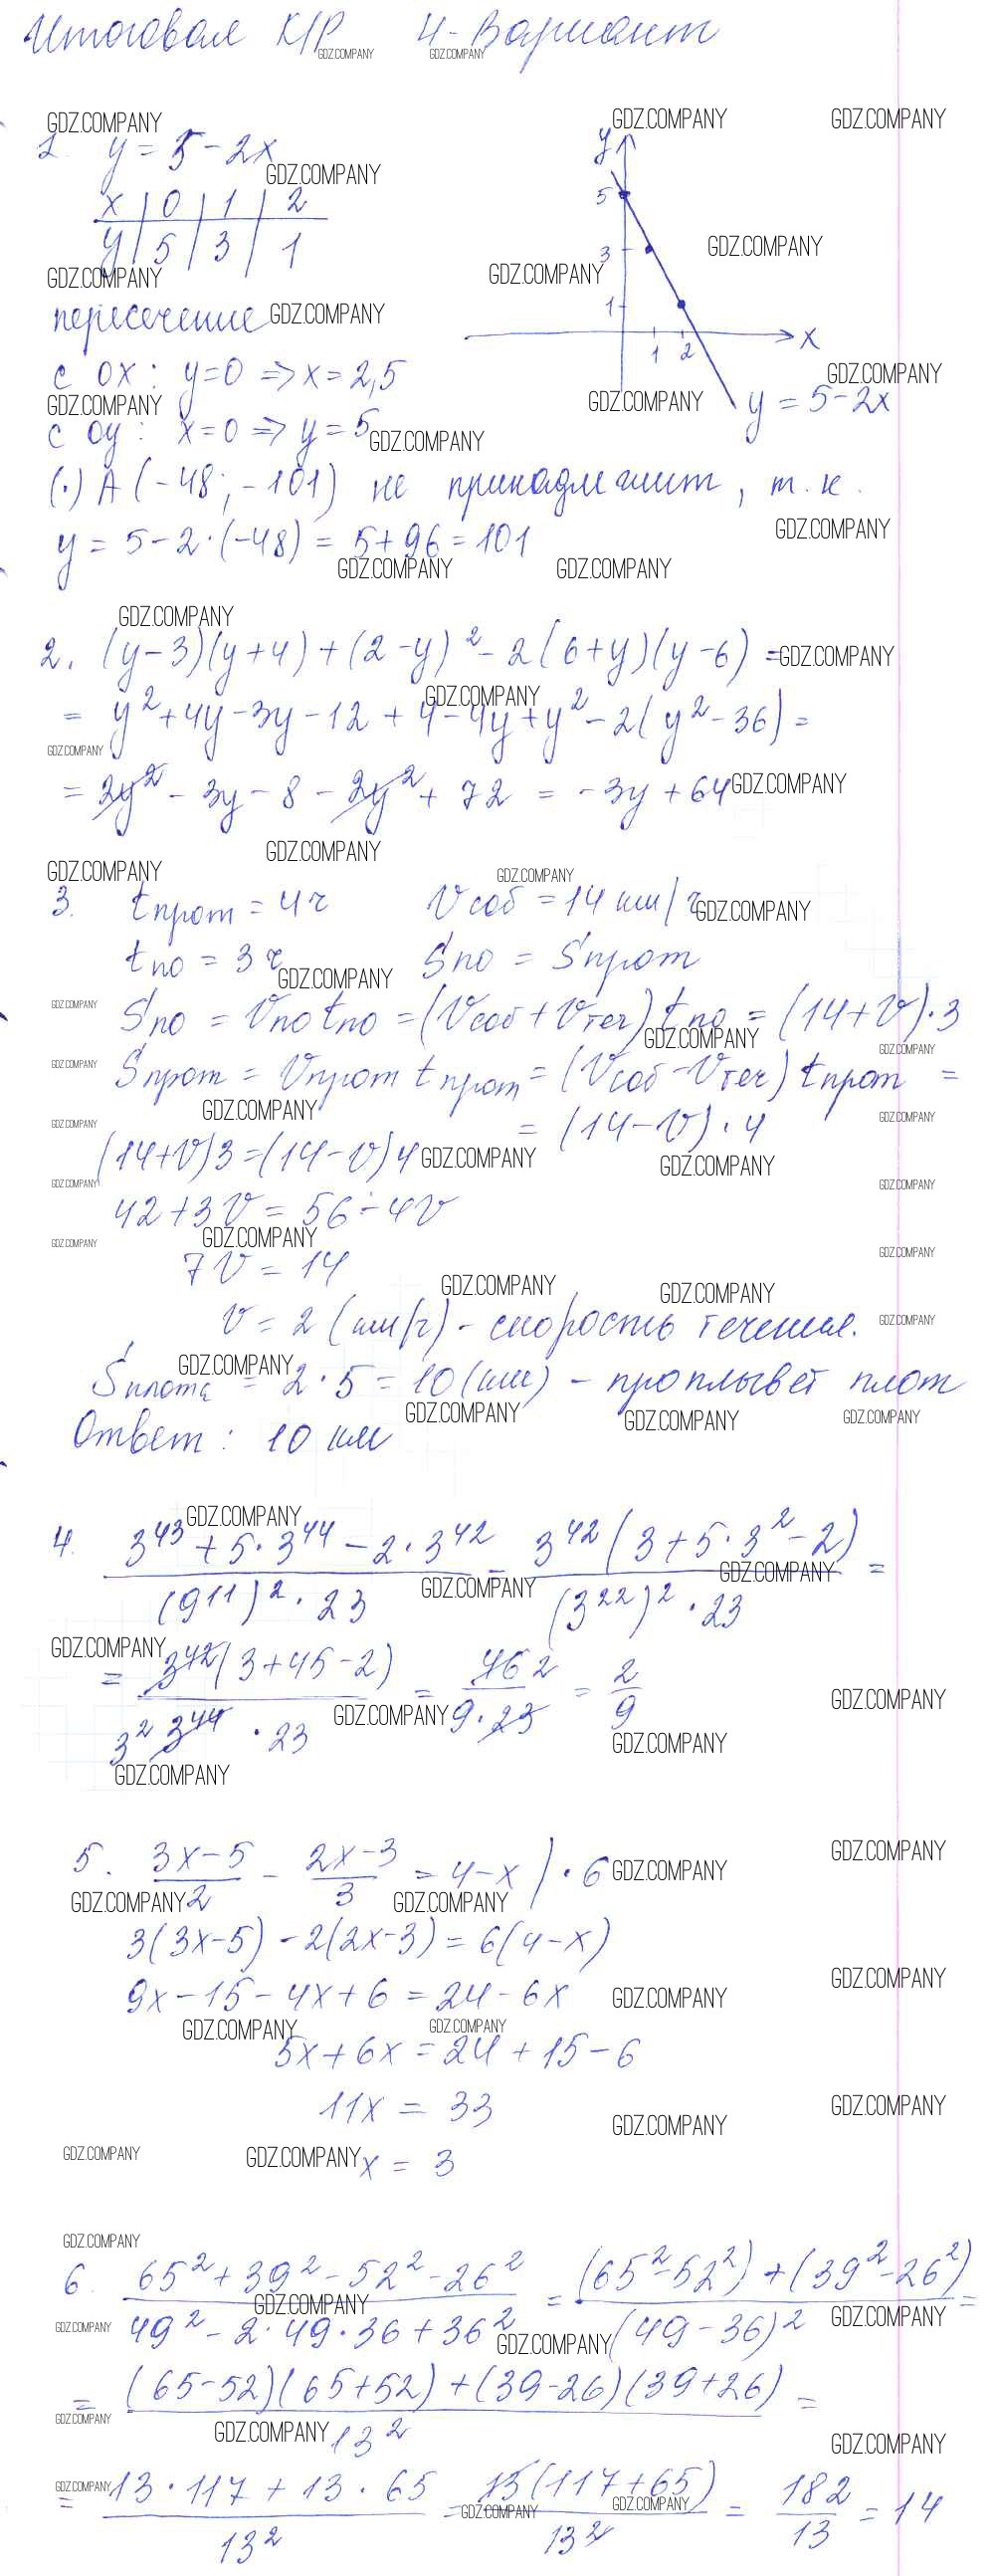 Итоговая К/Р 4-Вариант
1. y = 5 - 2x
x | 0 | 1 | 2
y | 5 | 3 | 1
пересечение
с ox: y=0 => x=2,5
с oy: x=0 => y=5
y
5
3
1
1 2
x
y = 5-2x
(·) A (-48; -101) не принадлежит, т.к.
y = 5-2·(-48) = 5+96 = 101
2. (y-3)(y+4)+(2-y)²-2(6+y)(y-6) =
= y²+4y-3y-12+4-4y+y²-2(y²-36) =
= 2y²-3y-8-2y²+72 = -3y+64
3. tпрот = 4ч Vсоб = 14 км/ч
tпо = 3ч Sпо = Sпрот
Sпо = Vпо tпо = (Vсоб+Vтеч) tпо = (14+V)·3
Sпрот = Vпрот tпрот = (Vсоб-Vтеч) tпрот =
= (14-V)·4
(14+V)3=(14-V)4
42+3V = 56-4V
7V = 14
V = 2 (км/ч) - скорость течения.
Sплота = 2·5 = 10 (км) - проплывет плот
Ответ: 10 км
4. (3⁴³+5·3⁴⁴-2·3⁴²)/((9¹¹)²·23) = 3⁴²(3+5·3²-2)/((3²²)²·23) =
= 3⁴²(3+45-2)/(3² 3⁴⁴·23) = 46 2/(9·23) = 2/9
5. (3x-5)/2 - (2x-3)/3 = 4-x )·6
3(3x-5)-2(2x-3) = 6(4-x)
9x-15-4x+6 = 24-6x
5x+6x = 24+15-6
11x = 33
x = 3
6. (65²+39²-52²-26²)/(49²-2·49·36+36²) = ((65²-52²)+(39²-26²))/(49-36)² =
= ((65-52)(65+52)+(39-26)(39+26))/13² =
= (13·117+13·65)/13² = 13(117+65)/13² = 182/13 = 14
GDZ.COMPANY